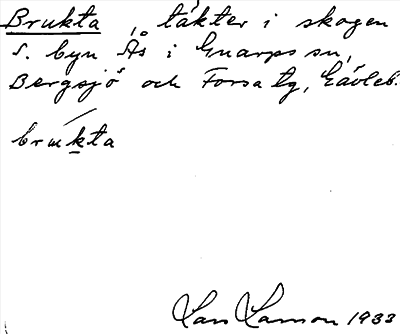 Brukta, täkter i skogen
S. byn Ås i Gnarps sn,
Bergsjö och Forsa tg, Gävleb.
brukta
Lars Larsson 1933